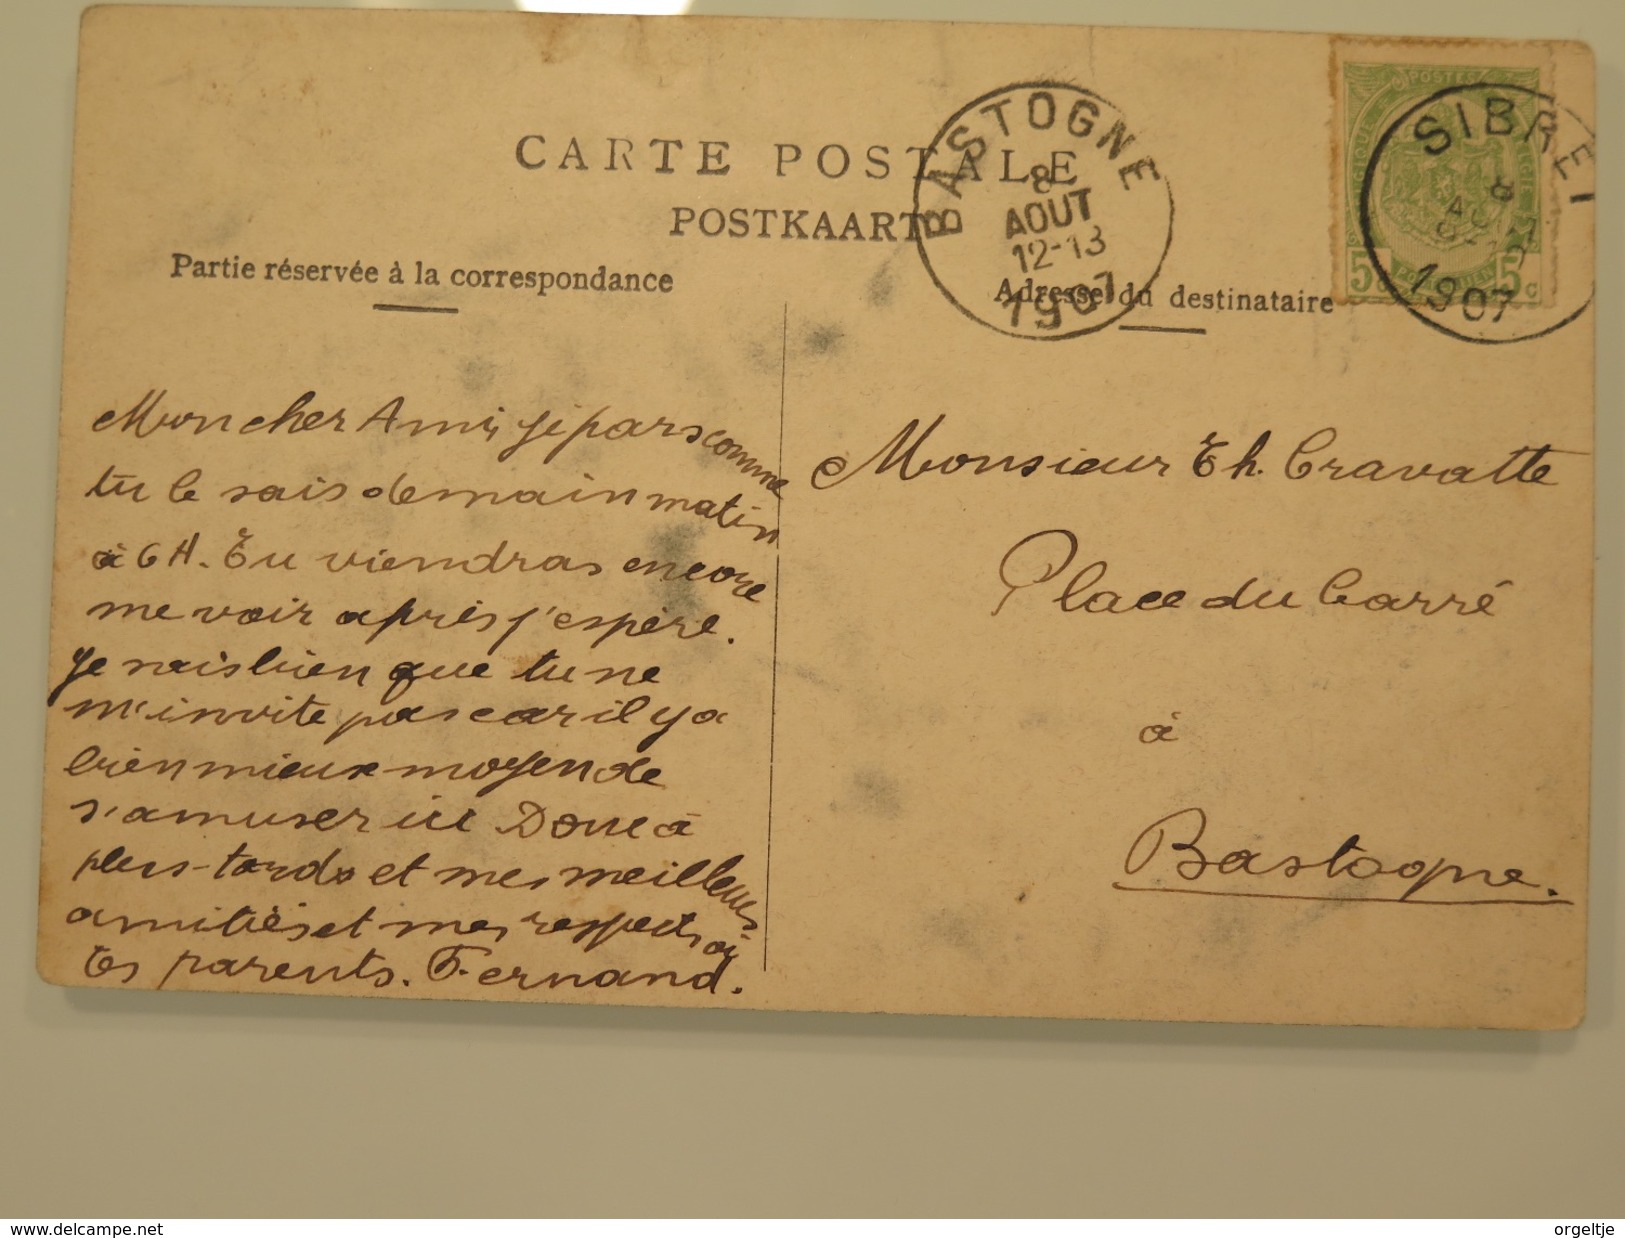 CARTE POSTALE
POSTKAART
Partie réservée à la correspondance
Adresse du destinataire
BASTOGNE
8
AOUT
12-13
1907
POSTES
SIBRET
8
1907
5c
5c
Mon cher Ami, je pars comme
tu le sais demain matin
à 6 H. Tu viendras encore
me voir après j'espère.
Je sais bien que tu ne
m'invite pas car il y a
bien mieux moyen de
s'amuser ici Donc à
plus-tards et mes meilleures
amitiés et mes respects à
tes parents. Fernand.
Monsieur Th. Cravatte
Place du Carré
à
Bastogne.
www.delcampe.net
orgeltje